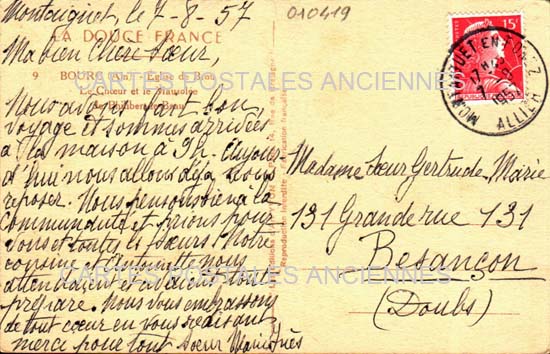 Montaiguet, le 7-8-57
010419
LA DOUCE FRANCE
Ma bien Chère Sœur,
9 BOURG (Ain) - Eglise de Brou
Le Chœur et le Mausolée
de Philibert le Beau
CARTES POSTALES ANCIENNES
Nous avons fait bon
voyage et sommes arrivées
à la maison à 9h. Aujour
d'hui nous allons déjà nous
reposer. Nous pensons bien à la
Communauté et prions pour
Vous et toutes les Sœurs. Notre
cousine et Antoinette nous
attendaient et avaient tout
préparé. Nous vous embrassons
de tout cœur en vous redisant
merci pour tout Sœur
Reproduction interdite - Fabrication française
15f
MONTAIGUET EN FOREZ
17H
7
1957
ALLIER
Madame Sœur Gertrude-Marie
131 Grande rue 131
Besançon
CARTES POSTALES ANCIENNES
(Doubs)